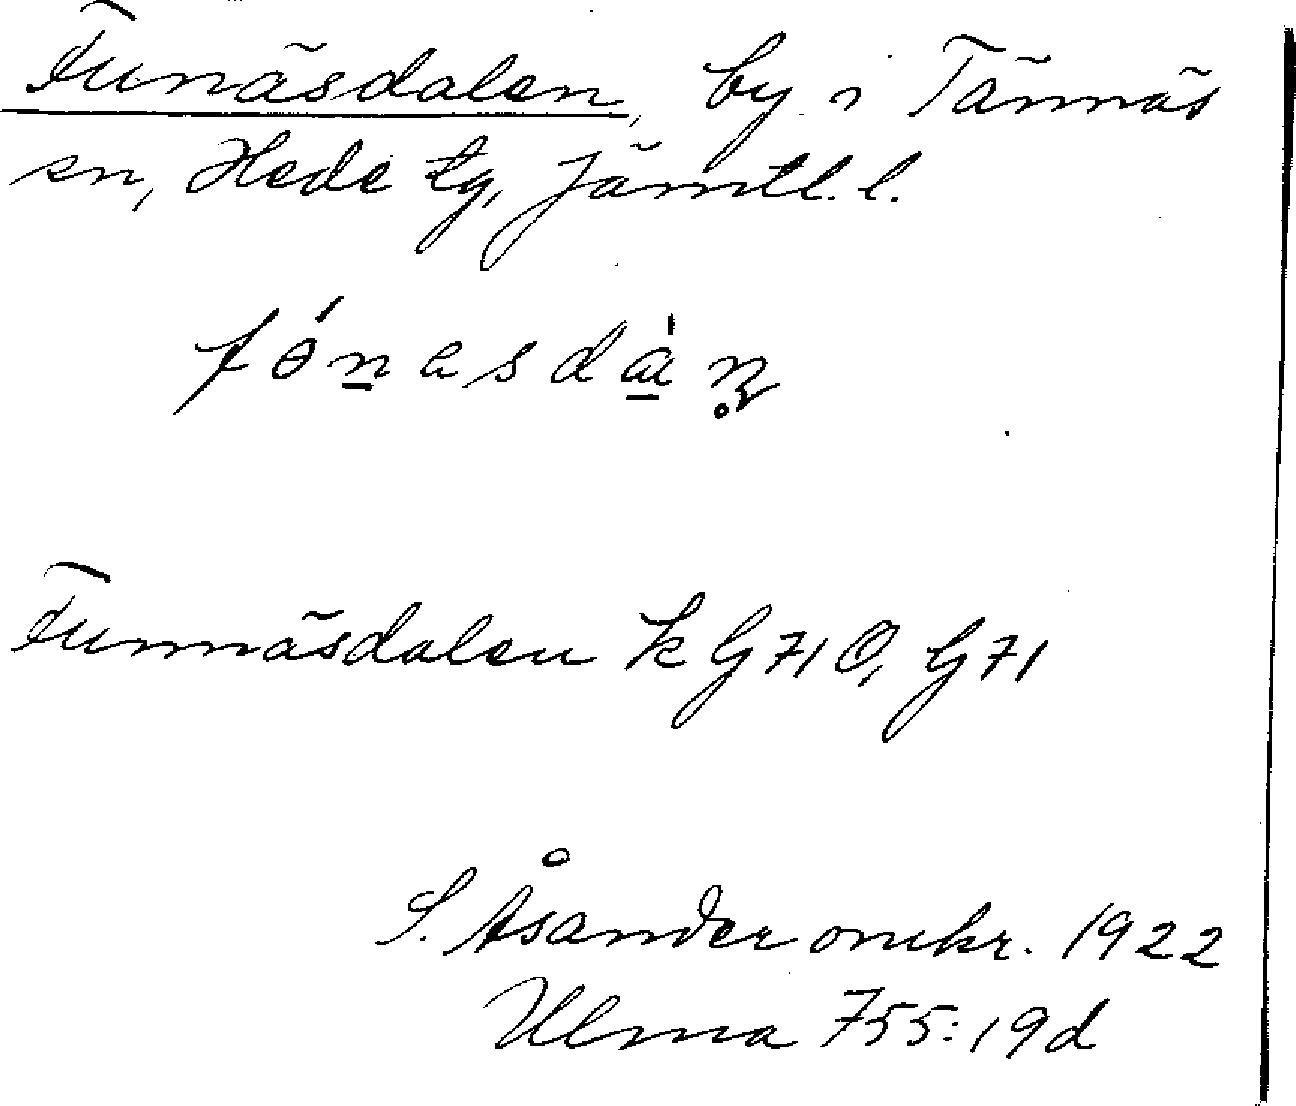 Funäsdalen, by i Tännäs
sn, Hede tg, Jämtl. l.
Funnäsdalen k G 71 Ö, G 71
S. Åsander omkr. 1922
Ulma 755:19d